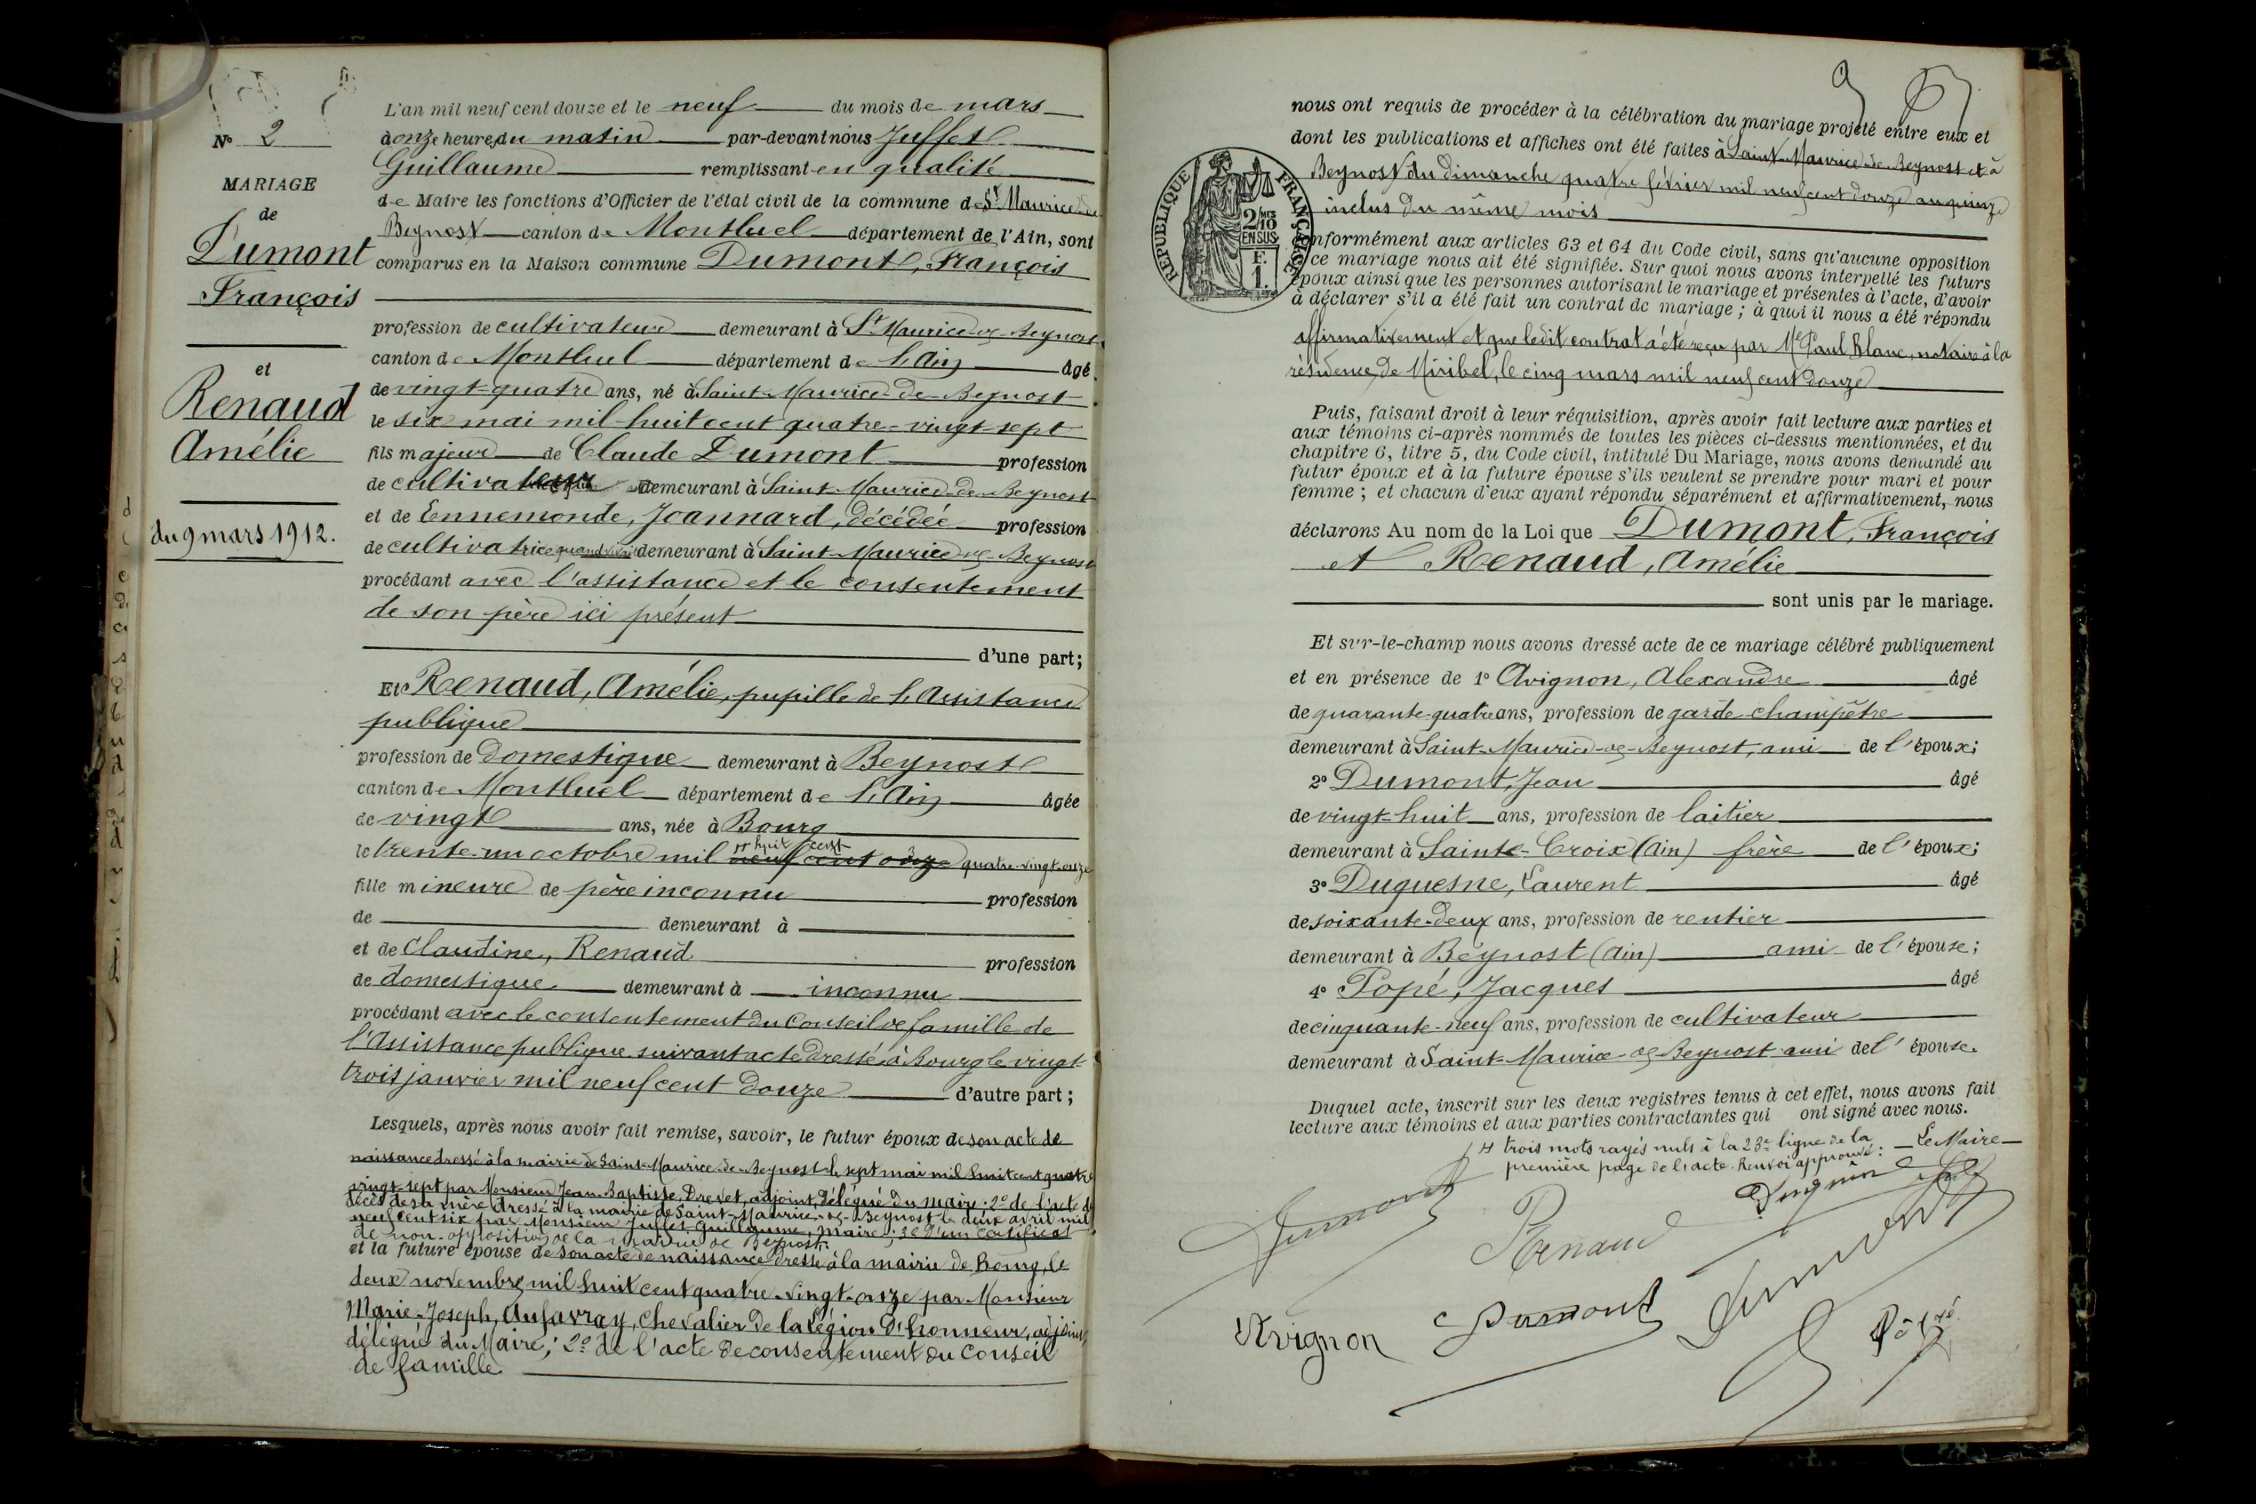 N° 2
MARIAGE
de
Dumont
François
et
Renaud
Amélie
du 9 mars 1912.
L'an mil neuf cent douze et le neuf du mois de mars
à onze heures du matin par-devant nous Juffet
Guillaume remplissant en qualité
de Maire les fonctions d'Officier de l'état civil de la commune de St Maurice de
Beynost canton de Montluel département de l'Ain, sont
comparus en la Maison commune Dumont, François
profession de cultivateur demeurant à St Maurice-de-Beynost
canton de Montluel département de l'Ain âgé
de vingt-quatre ans, né à Saint-Maurice-de-Beynost
le six mai mil huit cent quatre-vingt-sept
fils majeur de Claude Dumont profession
de cultivateur demeurant à Saint-Maurice-de-Beynost
et de Ennemonde, Joannard, décédée profession
de cultivatrice quand vivait demeurant à Saint-Maurice-de-Beynost
procédant avec l'assistance et le consentement
de son père ici présent
d'une part;
Et Renaud, Amélie, pupille de l'Assistance
publique
profession de domestique demeurant à Beynost
canton de Montluel département de l'Ain âgée
de vingt ans, née à Bourg
huit cent
le trente-un octobre mil neuf cent onze quatre-vingt-onze
fille mineure de père inconnu profession
de demeurant à
et de Claudine, Renaud profession
de domestique demeurant à inconnu
procédant avec le consentement du Conseil de famille de
l'Assistance publique suivant acte dressé à Bourg le vingt-
trois janvier mil neuf cent douze d'autre part;
Lesquels, après nous avoir fait remise, savoir, le futur époux de son acte de
naissance dressé à la mairie de Saint-Maurice-de-Beynost le sept mai mil huit cent quatre
vingt-sept par Monsieur Jean-Baptiste, Drevet, adjoint, délégué du maire; 2° de l'acte de
décès de sa mère dressé à la mairie de Saint-Maurice-de-Beynost le deux avril mil
neuf cent six par Monsieur Juffet, Guillaume, maire; 3° d'un certificat
de non-opposition de la mairie de Beynost.
et la future épouse de son acte de naissance dressé à la mairie de Bourg, le
deux novembre mil huit cent quatre-vingt-onze par Monsieur
Marie-Joseph, Aufavray, Chevalier de la Légion d'honneur, adjoint,
délégué du Maire; 2° de l'acte de consentement du Conseil
de famille
nous ont requis de procéder à la célébration du mariage projeté entre eux et
dont les publications et affiches ont été faites à Saint-Maurice-de-Beynost et à
Beynost du dimanche quatre février mil neuf cent douze au quinze
inclus du même mois
RÉPUBLIQUE FRANÇAISE
2/10 MES
EN SUS
F.
1.
conformément aux articles 63 et 64 du Code civil, sans qu'aucune opposition
à ce mariage nous ait été signifiée. Sur quoi nous avons interpellé les futurs
époux ainsi que les personnes autorisant le mariage et présentes à l'acte, d'avoir
à déclarer s'il a été fait un contrat de mariage; à quoi il nous a été répondu
affirmativement et que ledit contrat a été reçu par Me Paul Blanc, notaire à la
résidence de Miribel, le cinq mars mil neuf cent douze
Puis, faisant droit à leur réquisition, après avoir fait lecture aux parties et
aux témoins ci-après nommés de toutes les pièces ci-dessus mentionnées, et du
chapitre 6, titre 5, du Code civil, intitulé Du Mariage, nous avons demandé au
futur époux et à la future épouse s'ils veulent se prendre pour mari et pour
femme; et chacun d'eux ayant répondu séparément et affirmativement, nous
déclarons Au nom de la Loi que Dumont, François
et Renaud, Amélie
sont unis par le mariage.
Et sur-le-champ nous avons dressé acte de ce mariage célébré publiquement
et en présence de 1° Avignon, Alexandre âgé
de quarante-quatre ans, profession de garde-champêtre
demeurant à Saint-Maurice-de-Beynost, ami de l'époux;
2° Dumont, Jean âgé
de vingt-huit ans, profession de laitier
demeurant à Sainte-Croix (Ain) frère de l'époux;
3° Duquesne, Laurent âgé
de soixante-deux ans, profession de rentier
demeurant à Beynost (Ain) ami de l'épouse;
4° Popé, Jacques âgé
de cinquante-neuf ans, profession de cultivateur
demeurant à Saint-Maurice-de-Beynost ami de l'épouse.
Duquel acte, inscrit sur les deux registres tenus à cet effet, nous avons fait
lecture aux témoins et aux parties contractantes qui ont signé avec nous.
trois mots rayés nuls à la 23e ligne de la
première page de l'acte. Renvoi approuvé. Le Maire
Dumont
Renaud
Avignon
Dumont
Dumont